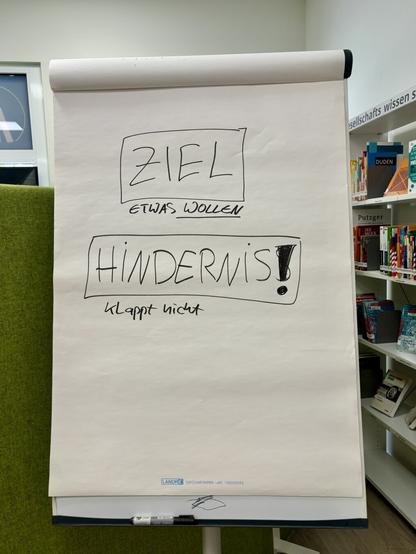 ZIEL
ETWAS WOLLEN
HINDERNIS!
klappt nicht
LANDRÉ
sellschafts wissen s
DUDEN
Putzger